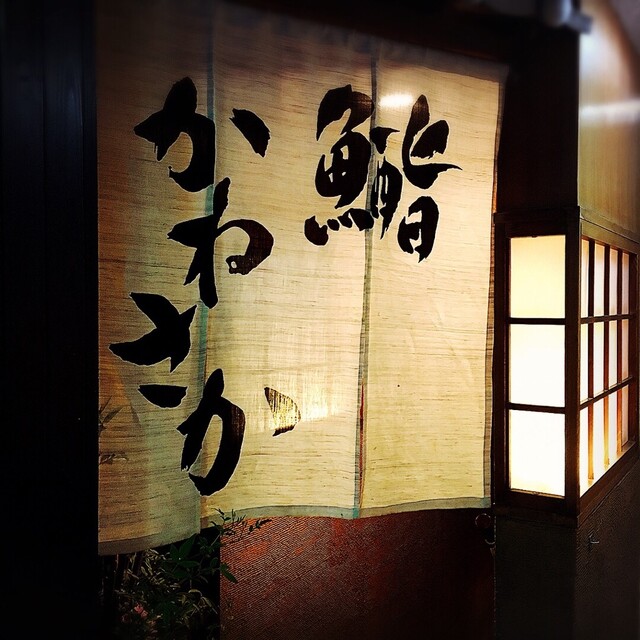 鮨
かわさか